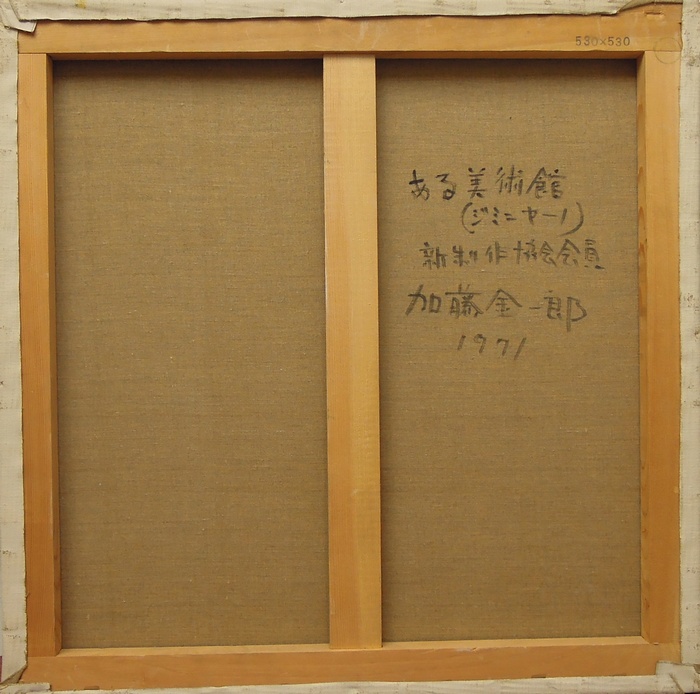 530×530
ある美術館
(ジミニヤーノ)
新制作協会会員
加藤金一郎
1971